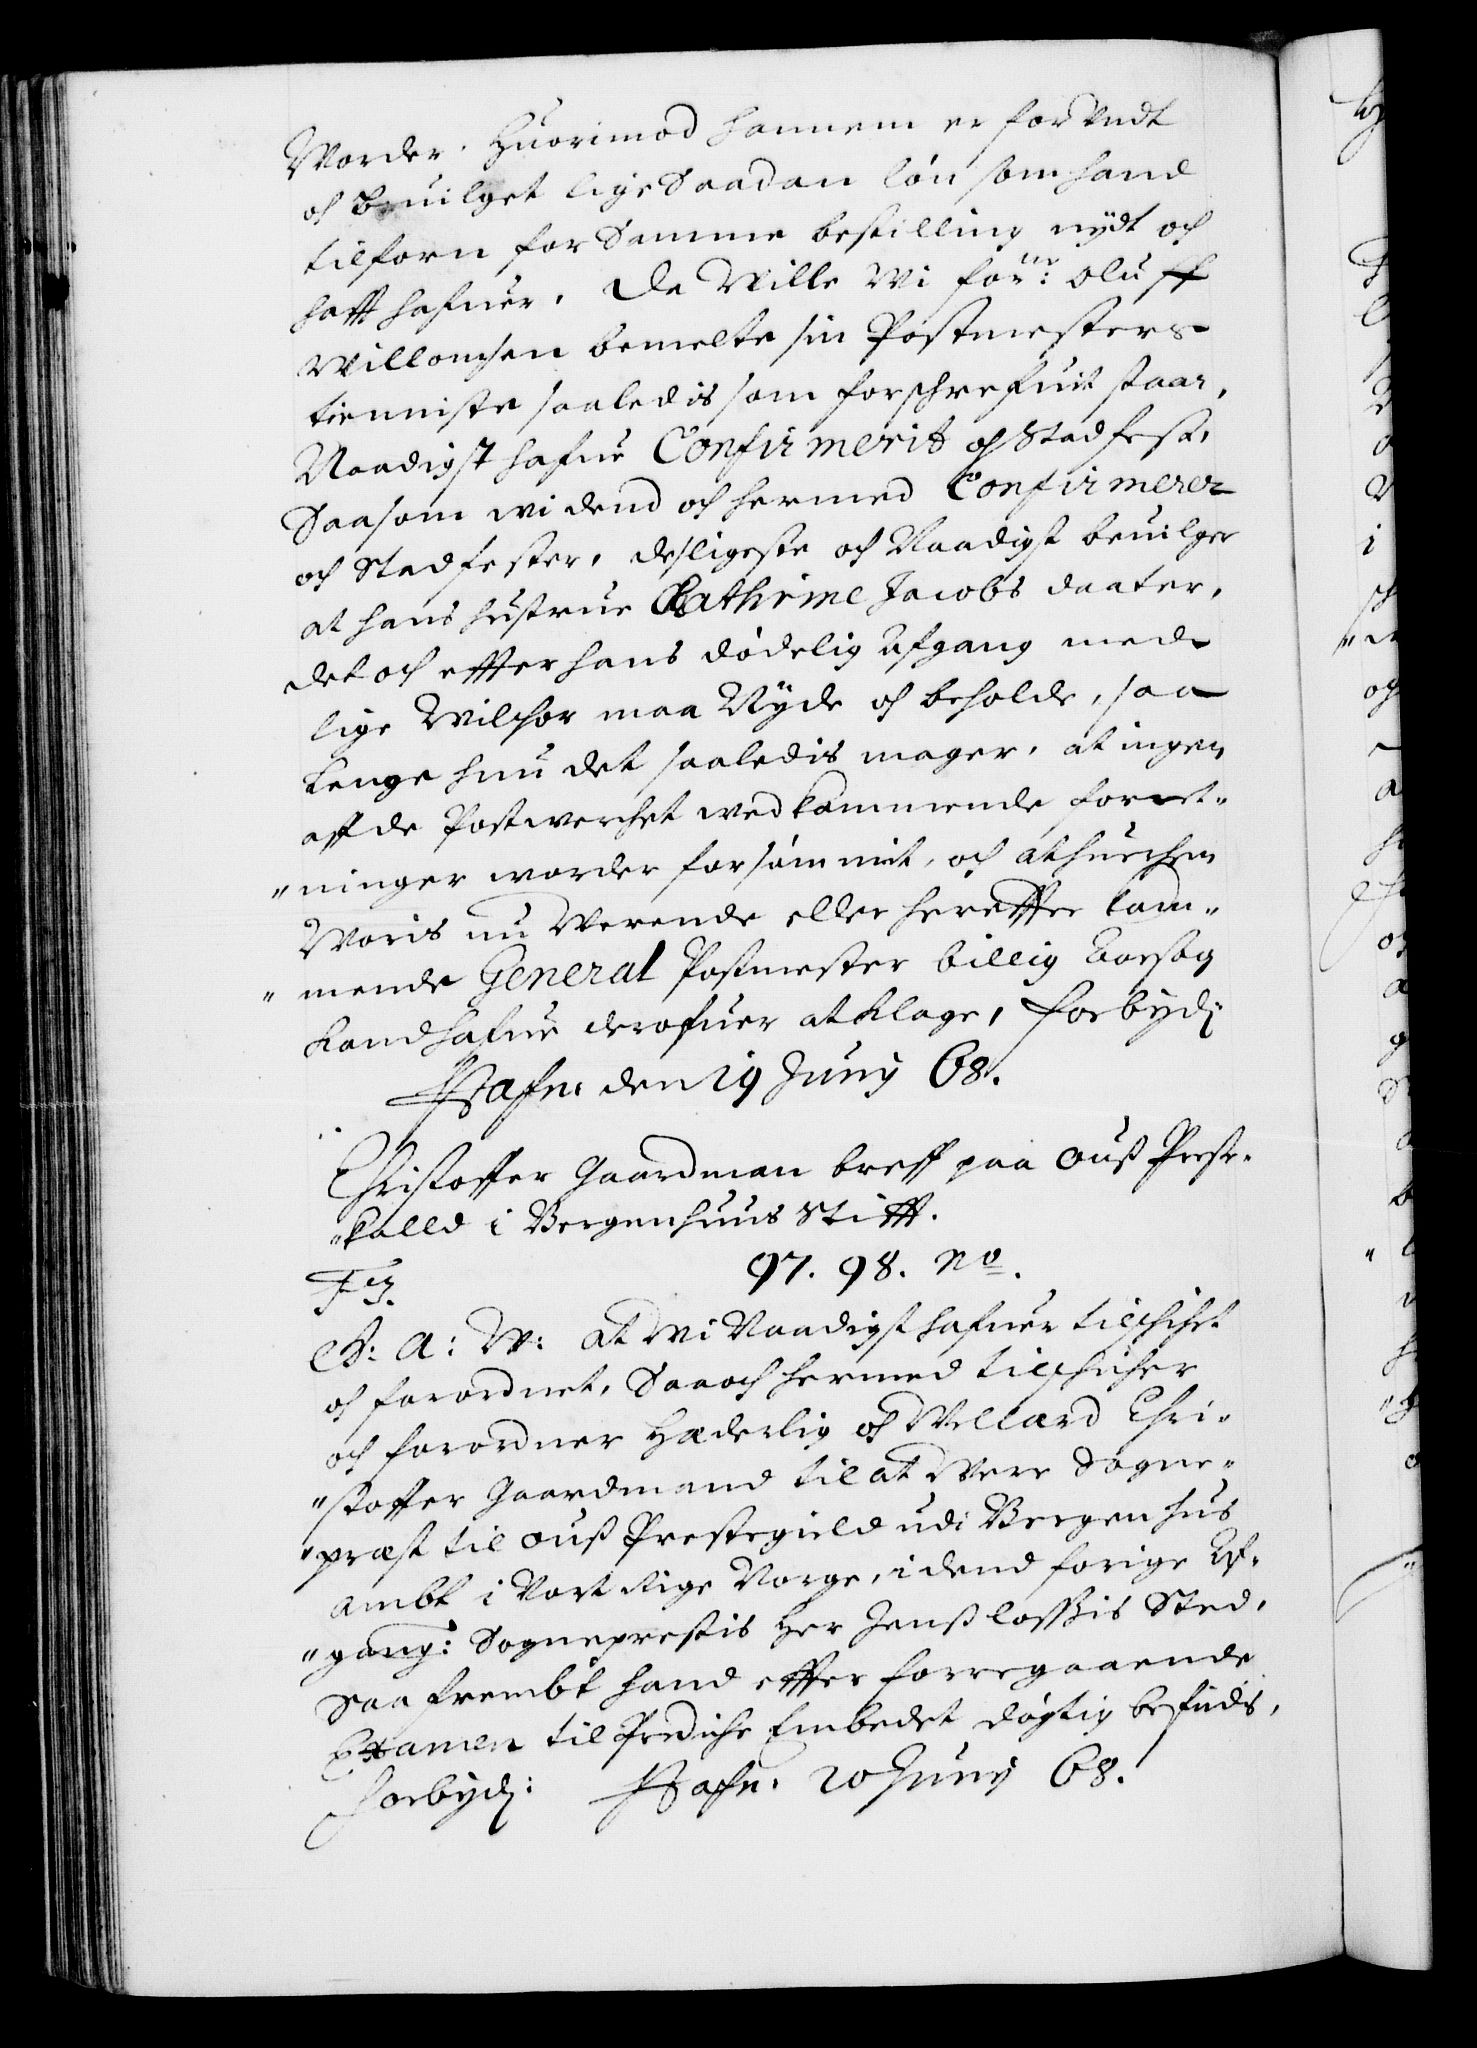 Worder. Huorimod hannem er forundt
och beuilget lige Saadan løn som hand
tilforn for Samme bestilling nÿdt och
hafft hafuer. Da Wille Wi forne: Oluff
Willomsen bemelte sin Postmesters
tienniste saaledis som forschrefuit staar,
Naadigst hafue Confirmerit och Stadfest,
Saasom wi dend och hermed Confirmerer
och Stadfester, desligeste och Naadigst beuilger
at hans hustrue Cathrine Jacobs daater,
det och effter hans dødelig Afgang med
lige Wilchor maa Nÿde och beholde, saa
Lenge hun det saaledis mager, at ingen
aff de Postwerchet wedkommende forret-
"ninger worder forsømmit, och at huerchen
Woris nu Werende eller hereffter kom-
"mende General Postmester billig Aarsag
kand hafue derofuer at klage, Forbÿd:
Hafn: den 19 Junij 68.
Christoffer Gaardman breff paa Ouß Preste-
"kalld i Bergenhuus Stifft.
F3.
97. 98. No.
G: A: W: At Wi Naadigst hafuer tilschichet
och forordnet, Saa och hermed tilschicher
och forordner Hæderlig och Wellærd Chri-
"stoffer Gaardmand til at Were Sogne-
"præst til Ouß Prestegield udi Bergenhus
Ambt i Vort Rige Norge, i dend forige Af-
"gang: Sogneprestis Her Jenß Sted,
Saafrembt hand effter foregaaende
Examen til Prediche Embedet døgtig befindis,
Forbÿd: Hafn: 20 Junij 68.